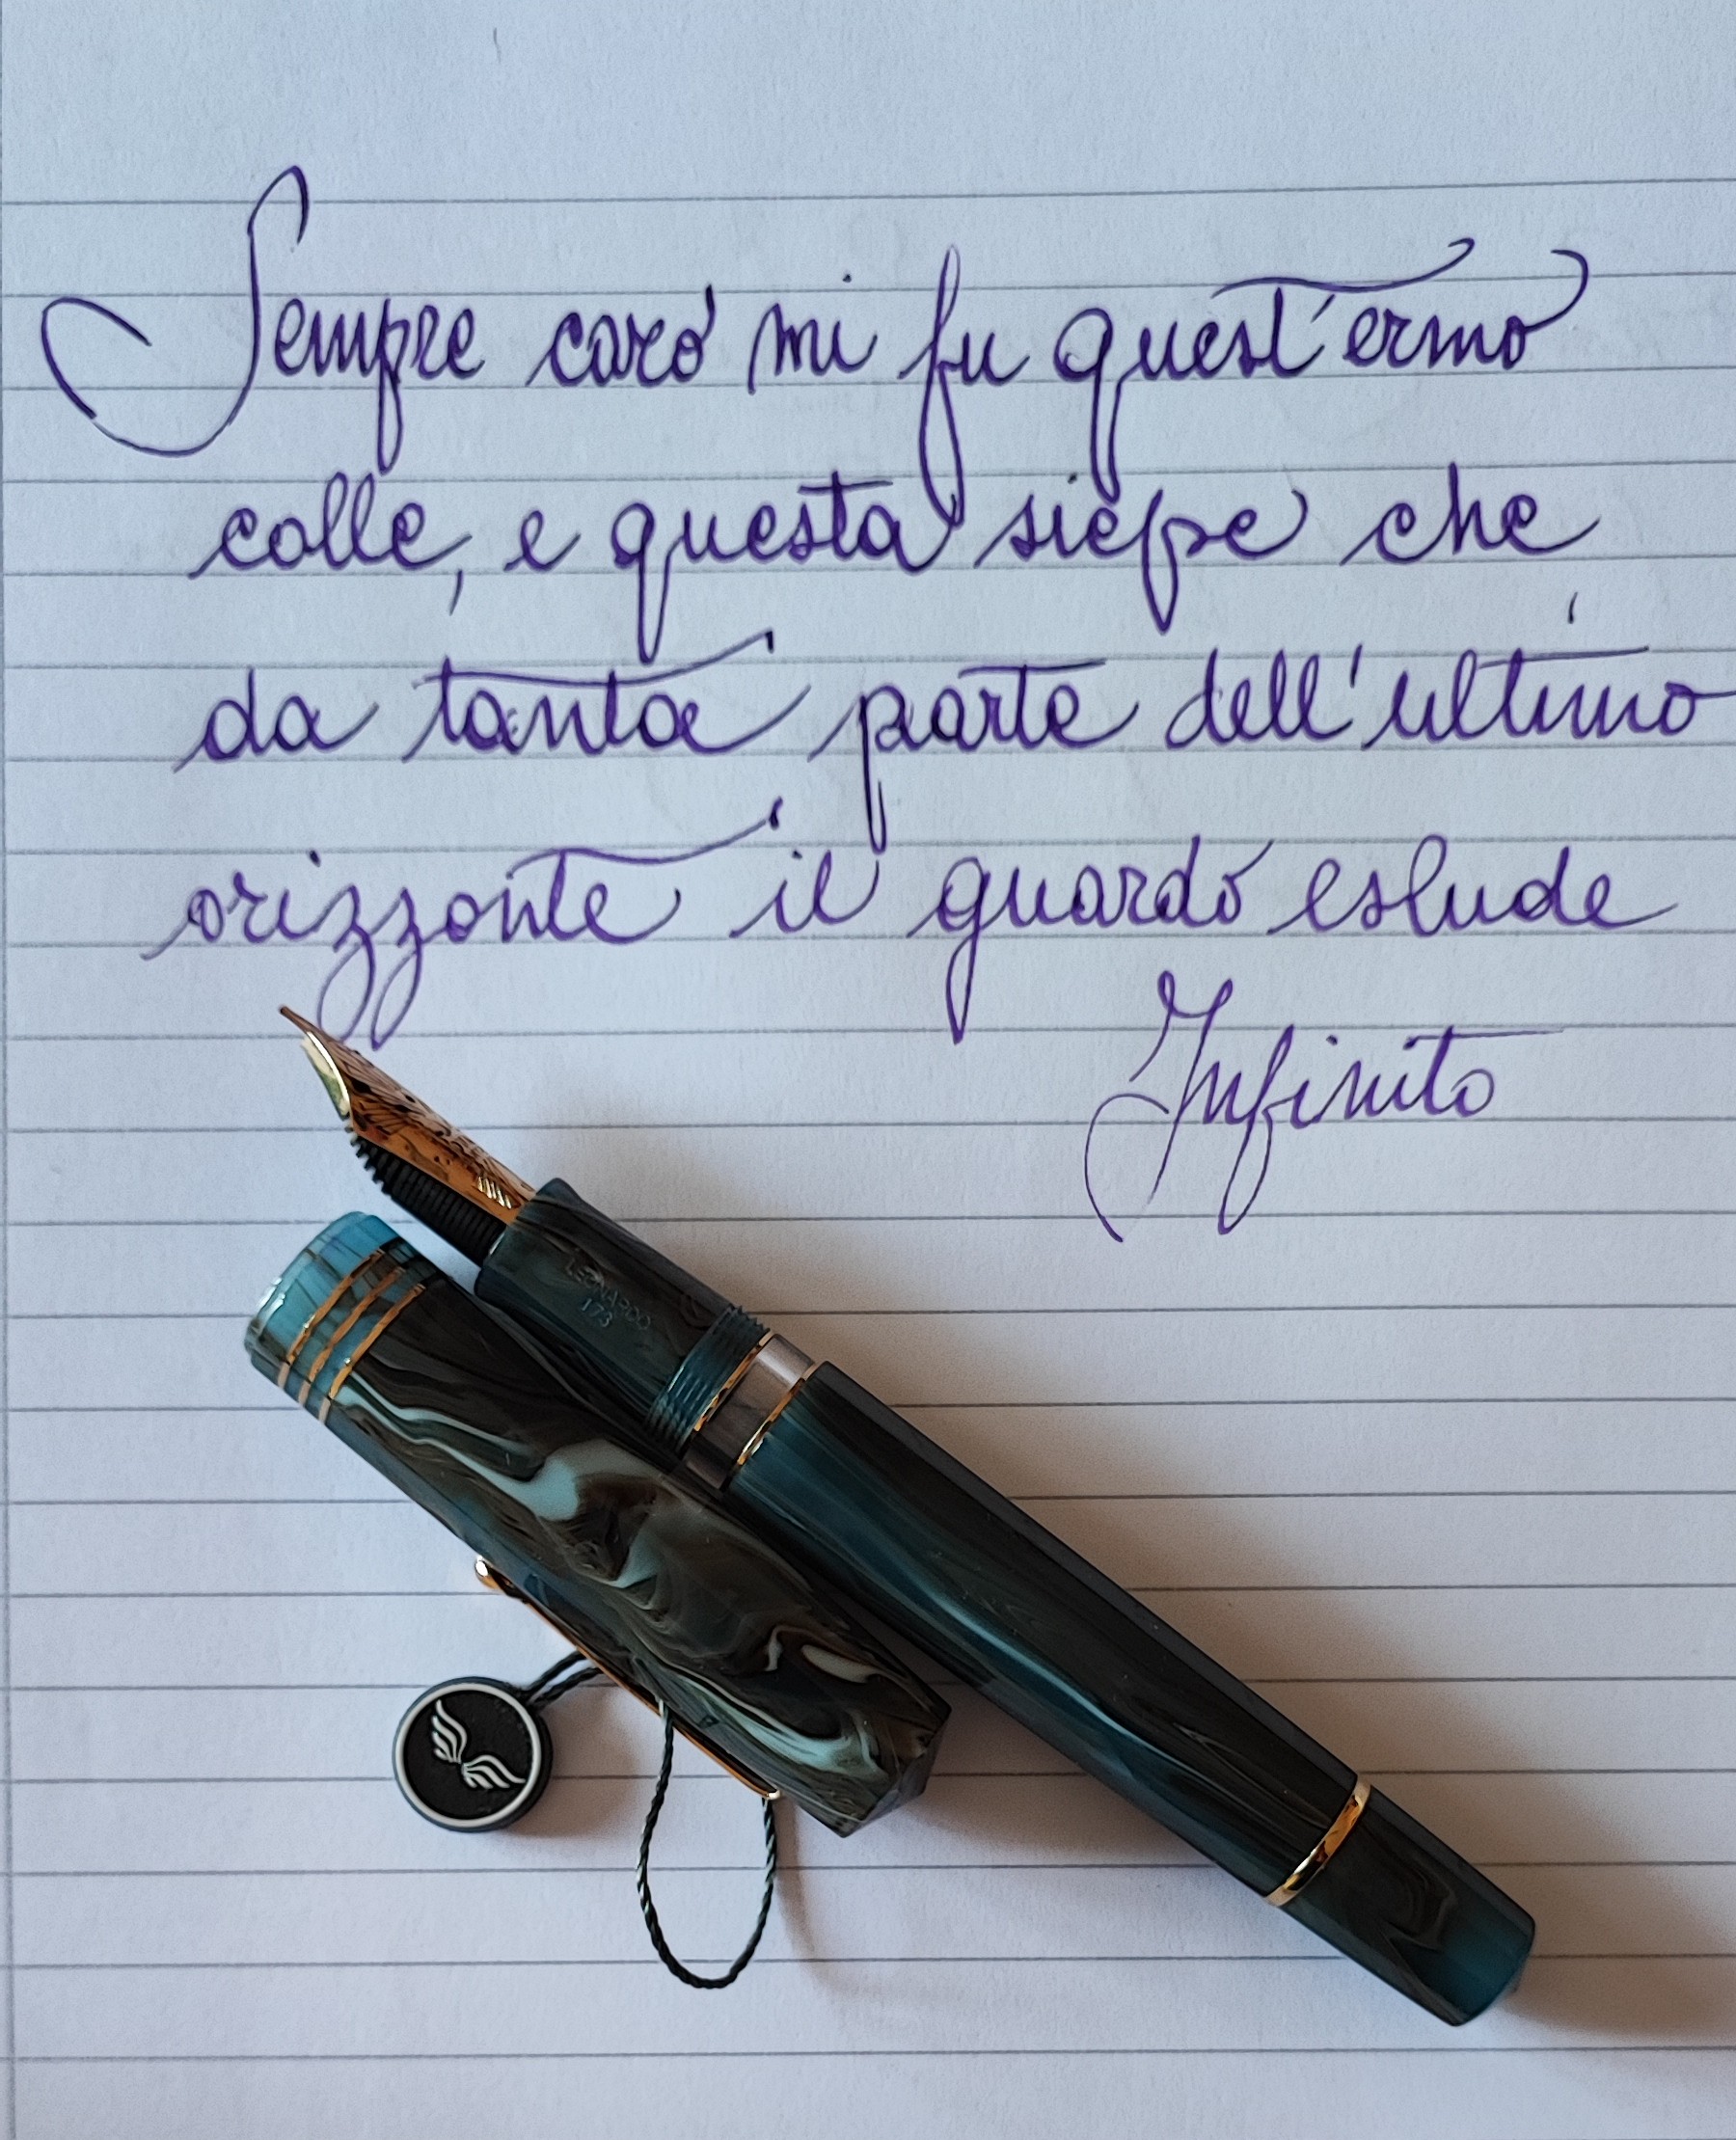 Sempre caro mi fu quest'ermo
colle, e questa siepe che
da tanta parte dell'ultimo
orizzonte il guardo eslude
Infinito
LEONARDO
173